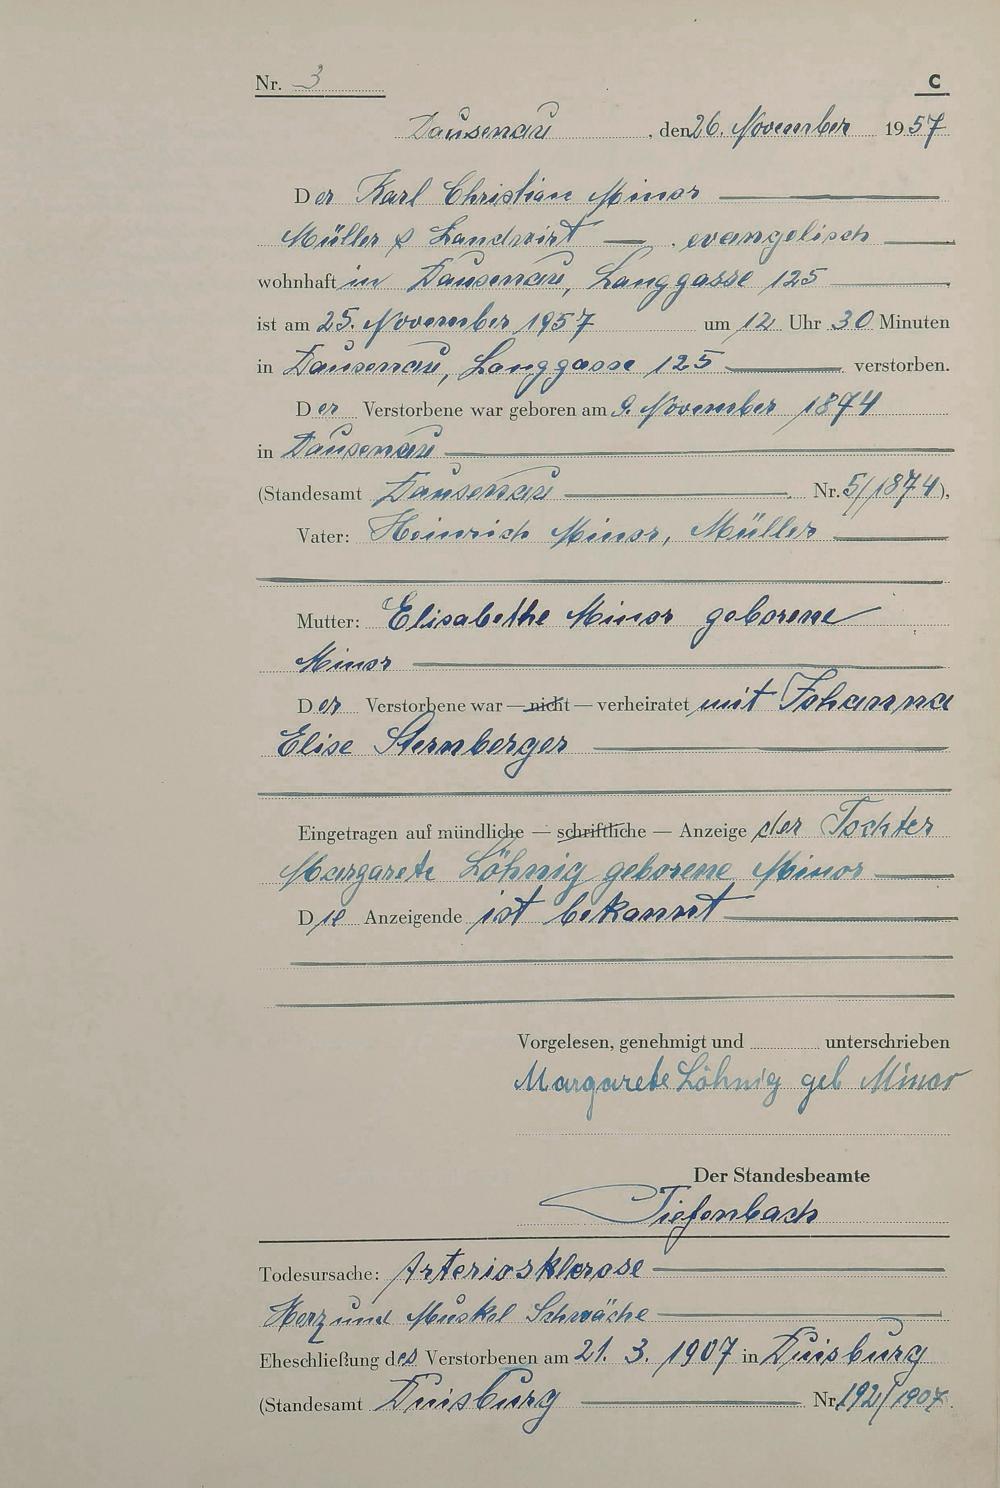 Nr. 3
C
Dausenau, den 26. November 1957
Der Karl Christian Minor
Müller & Landwirt — , evangelisch
wohnhaft in Dausenau, Langgasse 125
ist am 25. November 1957 um 12 Uhr 30 Minuten
in Dausenau, Langgasse 125 verstorben.
Der Verstorbene war geboren am 9. November 1874
in Dausenau
(Standesamt Dausenau Nr. 5/1874),
Vater: Heinrich Minor, Müller
Mutter: Elisabethe Minor geborene
Minor
Der Verstorbene war — nicht — verheiratet mit Johanna
Elise Sternberger
Eingetragen auf mündliche — schriftliche — Anzeige der Tochter
Margarete Löhnig geborene Minor
Die Anzeigende ist bekannt
Vorgelesen, genehmigt und unterschrieben
Margarete Löhnig geb Minor
Der Standesbeamte
Tiefenbach
Todesursache: Arteriosklerose
Herz und Muskel Schwäche
Eheschließung des Verstorbenen am 21. 3. 1907 in Duisburg
(Standesamt Duisburg Nr. 192/1907.